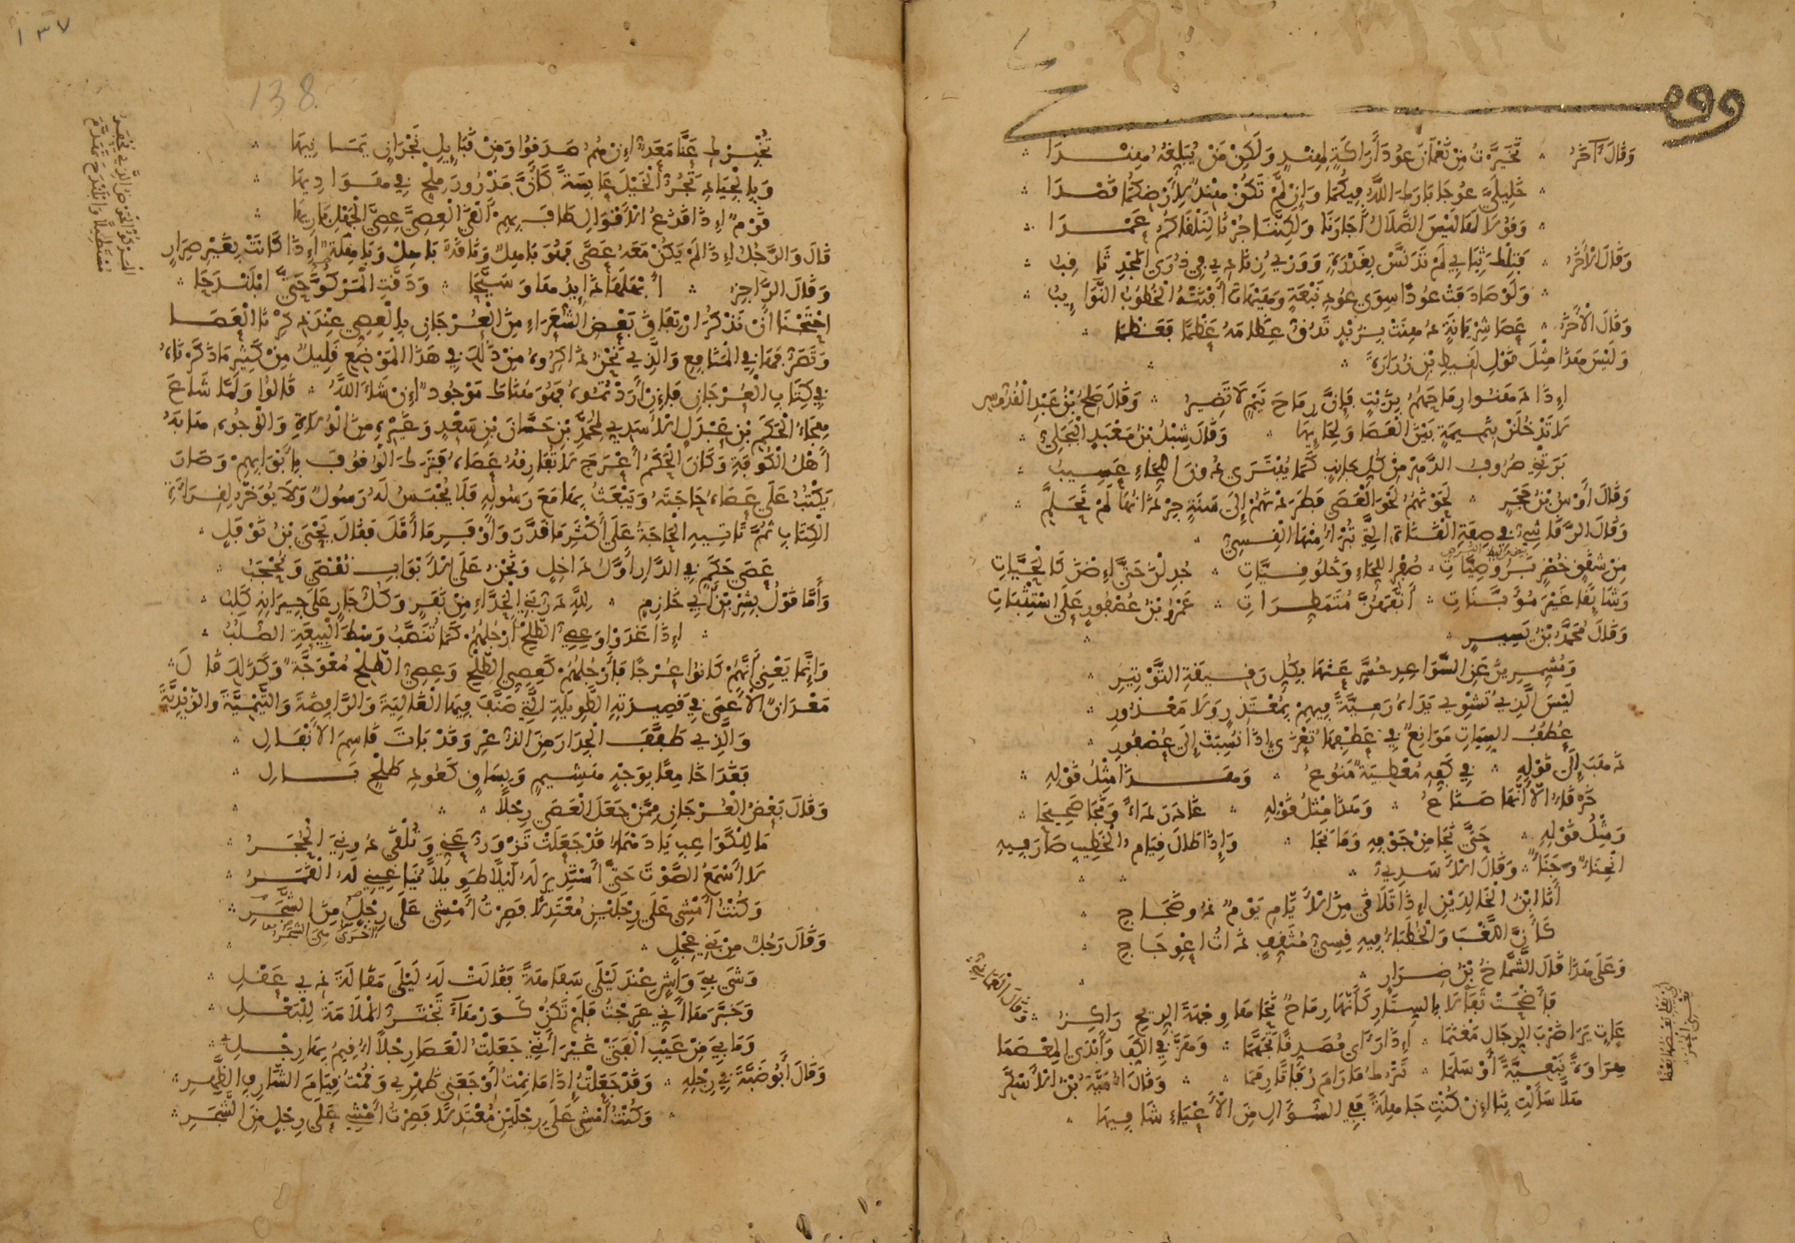 وقف
وَقَالَ آخَرُ ∴ تَخَيَّرْتُ مِنْ نَعْمَانَ عُودَ أَرَاكَةٍ لِهِنْدٍ وَلَكِنْ مَنْ يُبَلِّغُهُ هِنْدَا
خَلِيلَيَّ عُوجَا بَارَكَ اللَّهُ فِيكُمَا وَإِنْ لَمْ تَكُنْ هِنْدٌ لِأَرْضِكُمَا قَصْدَا
وَقُولَا لَهَا لَيْسَ الضَّلَالُ أَجَارَنَا وَلَكِنَّنَا جُرْنَا لِنَلْقَاكُمْ عَمْدَا
وَقَالَ الْآخَرُ ∴ فَتِلْكَ ثِيَابِي لَمْ تُدَنَّسْ بِغَدْرَةٍ وَوَرْيُ زِنَادِي فِي ذُرَى الْمَجْدِ ثَاقِبُ
وَلَوْ صَادَفَتْ عُودًا سِوَى عُودِ نَبْعَةٍ وَهَيْهَاتَ أَفْنَتْهُ الْخُطُوبُ النَّوَائِبُ
وَقَالَ الْآخَرُ ∴ عَصَا شِرْيَانَةٍ دُهِنَتْ بِزُبْدٍ تَدُقُّ عِظَامَهُ عَظْمًا فَعَظْمَا
وَلَيْسَ هَذَا مِثْلَ قَوْلِ لَقِيطِ بْنِ زُرَارَةَ
إِذَا دَهَنُوا رِمَاحَهُمُ بِزُبْدٍ فَإِنَّ رِمَاحَ تَيْمٍ لَا تَضِيرُ ∴ وَقَالَ صَالِحُ بْنُ عَبْدِ الْقُدُّوسِ
لَا تَدْخُلَنْ بِنَمِيمَةٍ بَيْنَ الْعَصَا وَلِحَائِهَا ∴ وَقَالَ شِبْلُ بْنُ مَعْبَدٍ الْبَجَلِيُّ
بَرَتْنِي صُرُوفُ الدَّهْرِ مِنْ كُلِّ جَانِبٍ كَمَا يُبْتَرَى دُونَ اللِّحَاءِ عَسِيبُ
وَقَالَ أَوْسُ بْنُ حَجَرٍ ∴ لَحَوْنَهُمُ لَحْوَ الْعَصَى فَطَرَدْنَهُمْ إِلَى سَنَةٍ جِرْذَانُهَا لَمْ تَحَلَّمِ
وَقَالَ الرَّقَاشِيُّ فِي صِفَةِ الْقَنَاةِ الَّتِي تُبْرَى مِنْهَا الْقِسِيُّ
مِنْ شِقَقٍ خُضْرٍ بَرْوَصِيَّاتِ ∴ صُفْرِ اللِّحَاءِ وَخَلُوقِيَّاتِ ∴ جُدِلْنَ حَتَّى إِضْنَ كَالْحَيَّاتِ
رَشَائِقًا غَيْرَ مُؤَبَّنَاتِ ∴ أَنَّفَهُنَّ مُتَمَطِّرَاتِ ∴ عَمْرُو بْنُ عُصْفُورٍ عَلَى اسْتِثْبَاتِ
وَقَالَ مُحَمَّدُ بْنُ يَسِيرٍ
وَمُشَمِّرِينَ عَنِ السَّوَاعِدِ حُسَّرٍ عَنْهَا بِكُلِّ رَقِيقَةِ التَّوْتِيرِ
لَيْسَ الَّذِي تُشْوِي يَدَاهُ رَمِيَّةً فِيهِمْ بِمُعْتَذِرٍ وَلَا مَعْذُورِ
عُطْفُ السِّيَاتِ مَوَانِعٌ فِي عَطْفِهَا تُعْزَى إِذَا نُسِبَتْ إِلَى عُصْفُورِ
ذَهَبَ إِلَى قَوْلِهِ ∴ فِي كَفِّهِ مُعْطِيَةٌ مَنُوعُ ∴ وَهَذَا مِثْلُ قَوْلِهِ
خَرْقَاءُ إِلَّا أَنَّهَا صَنَاعُ ∴ وَهَذَا مِثْلُ قَوْلِهِ ∴ غَادَرَ دَاءً وَنَجَا صَحِيحَا
وَمِثْلُ قَوْلِهِ ∴ حَتَّى نَجَا مِنْ جَوْفِهِ وَمَا نَجَا ∴ وَإِذَا طَالَ قِيَامُ الْخَطِيبِ صَارَ فِيهِ
انْحِنَاءٌ وَجَنَأٌ وَقَالَ الْأَسَدِيُّ
أَنَا ابْنُ الْخَالِدَيْنِ إِذَا تَلَاقَى مِنَ الْأَيَّامِ يَوْمٌ ذُو ضَجَاجِ
كَأَنَّ اللَّغْبَ وَالْخُطَبَاءَ فِيهِ قِسِيُّ مُثَقِّفٍ ذَاتُ اعْوِجَاجِ
وَعَلَى هَذَا قَالَ الشَّمَّاخُ بْنُ ضِرَارٍ
فَأَضْحَتْ تَفَالَا بِالسِّتَارِ كَأَنَّهَا رِمَاحٌ نَحَاهَا وِجْهَةَ الرِّيحِ رَاكِزُ ∴ وَقَالَ الْعُمَانِيُّ
عَاتٍ يَرَى ضَرْبَ الرِّجَالِ مَغْنَمَا ∴ إِذَا رَأَى مُصَدِّقًا تَجَهَّمَا ∴ وَهَزَّ فِي الْكَفِّ وَأَبْدَى الْمِعْصَمَا
هِرَاوَةً نَبْعِيَّةً أَوْ سَلَمَا ∴ تَتْرُكُ مَا رَامَ رُفَاتًا رِمَمَا ∴ وَقَالَ أُمَيَّةُ بْنُ الْأَسْكَرِ
هَلَّا سَأَلْتِ بِنَا إِنْ كُنْتِ جَاهِلَةً فَفِي السُّؤَالِ مِنَ الْأَعْيَاءِ شَافِيهَا
١٣٧
138
تُخْبِرْكِ عَنَّا مَعَدٌّ إِنْ هُمُ صَدَقُوا وَمِنْ قَبَائِلِ نَجْرَانٍ يَمَانِيهَا
وَبِالْجِيَادِ تَجُرُّ الْخَيْلَ عَابِسَةً كَأَنَّ مَذْرُورَ مِلْحٍ فِي هَوَادِيهَا
قَوْمٌ إِذَا قَذَعُ الْأَقْوَالِ طَافَ بِهِمْ أَلْقَى الْعِصِيَّ عِصِيَّ الْجَهْلِ بَارِيهَا
قَالَ وَالرَّجُلُ إِذَا لَمْ يَكُنْ مَعَهُ عَصًى فَهُوَ بَاهِلٌ وَنَاقَةٌ بَاهِلٌ وَبَاهِلَةٌ إِذَا كَانَتْ بِغَيْرِ صِرَارٍ
وَقَالَ الرَّاجِزُ ∴ أَبْهَلَهَا ذَائِدُهَا وَسَبَّحَا ∴ وَدَقَّتِ الْمَرْكُوَّ حَتَّى ابْلَنْدَحَا
احْتَجْنَا أَنْ نَذْكُرَ ارْتِفَاقَ بَعْضِ الشُّعَرَاءِ مِنَ الْعُرْجَانِ بِالْعِصِيِّ عِنْدَ ذِكْرِنَا الْعَصَا
وَتَصَرُّفَهَا فِي الْمَنَافِعِ وَالَّذِي نَحْنُ ذَاكِرُوهُ مِنْ ذَلِكَ فِي هَذَا الْمَوْضِعِ قَلِيلٌ مِنْ كَثِيرِ مَا ذَكَرْنَاهُ
فِي كِتَابِ الْعُرْجَانِ فَإِنْ أَرَدْتُمُوهُ فَهُوَ هُنَاكَ مَوْجُودٌ إِنْ شَاءَ اللَّهُ ∴ قَالُوا وَلَمَّا شَاعَ
هِجَاءُ الْحَكَمِ بْنِ عَبْدَلٍ الْأَسَدِيِّ لِمُحَمَّدِ بْنِ حَسَّانَ بْنِ سَعْدٍ وَغَيْرِهِ مِنَ الْوُلَاةِ وَالْوُجُوهِ هَابَهُ
أَهْلُ الْكُوفَةِ وَكَانَ الْحَكَمُ أَعْرَجَ لَا تُفَارِقُهُ عَصَاهُ فَتَرَكَ الْوُقُوفَ بِأَبْوَابِهِمْ وَصَارَ
يَكْتُبُ عَلَى عَصَاهُ حَاجَتَهُ وَيَبْعَثُ بِهَا مَعَ رَسُولِهِ فَلَا يُحْبَسُ لَهُ رَسُولٌ وَلَا يُؤَخَّرُ لِقِرَاءَةِ
الْكِتَابِ ثُمَّ تَأْتِيهِ الْحَاجَةُ عَلَى أَكْثَرَ مَا قَدَّرَ وَأَوْفَرِ مَا أَمَّلَ فَقَالَ يَحْيَى بْنُ نَوْفَلٍ
عَصَى حَكَمٍ فِي الدَّارِ أَوَّلُ دَاخِلٍ وَنَحْنُ عَلَى الْأَبْوَابِ نُقْصَى وَنُحْجَبُ
وَأَمَّا قَوْلُ بِشْرِ بْنِ أَبِي خَازِمٍ ∴ لِلَّهِ دَرُّ بَنِي الْحَدَّاءِ مِنْ نَفَرٍ وَكُلُّ جَارٍ عَلَى جِيرَانِهِ كَلِبُ
إِذَا غَدَوْا وَعِصِيُّ الطَّلْحِ أَرْجُلُهُمْ كَمَا تُنَصَّبُ وَسْطَ الْبِيعَةِ الصُّلُبُ
وَإِنَّمَا يَعْنِي أَنَّهُمْ كَانُوا عُرْجًا فَأَرْجُلُهُمْ كَعِصِيِّ الطَّلْحِ وَعِصِيُّ الطَّلْحِ مُعْوَجَّةٌ وَكَذَلِكَ قَالَ
مَعْدَانُ الْأَعْمَى فِي قَصِيدَتِهِ الطَّوِيلَةِ الَّتِي صَنَّفَ فِيهَا الْغَالِيَةَ وَالرَّافِضَةَ وَالتَّيْمِيَّةَ وَالزَّيْدِيَّةَ
وَالَّذِي طَفَّفَ الْجِدَارَ مِنَ الذُّعْرِ وَقَدْ بَاتَ قَاسِمَ الْأَنْفَالِ
فَغَدَا خَامِعًا بِوَجْهٍ هَشِيمٍ وَبِسَاقٍ كَعُودِ طَلْحٍ بَالِ
وَقَالَ بَعْضُ الْعُرْجَانِ مِمَّنْ جَعَلَ الْعَصَى رِجْلًا
مَا لِلْكَوَاعِبِ يَا دَهْمَاءُ قَدْ جَعَلَتْ تَزْوَرُّ عَنِّي وَتُلْقَى دُونِيَ الْحُجَرُ
لَا أَسْمَعُ الصَّوْتَ حَتَّى أَسْتَدِيرَ لَهُ لَيْلًا طَوِيلًا يُنَاغِينِي لَهُ الْقَمَرُ
وَكُنْتُ أَمْشِي عَلَى رِجْلَيْنِ مُعْتَدِلًا فَصِرْتُ أَمْشِي عَلَى رِجْلٍ مِنَ الشَّجَرِ
أُخْرَى مِنَ الشَّجَرُ
وَقَالَ رَجُلٌ مِنْ بَنِي عِجْلٍ
وَشَى بِي وَاشٍ عِنْدَ لَيْلَى سَفَاهَةً فَقَالَتْ لَهُ لَيْلَى مَقَالَةَ ذِي عَقْلِ
وَخَبَّرَهَا أَنِّي عَرِجْتُ فَلَمْ تَكُنْ كَوَرْهَاءَ تَجْتَرُّ الْمَلَامَةَ لِلْبَعْلِ
وَمَا بِيَ مِنْ عَيْبِ الْفَتَى غَيْرَ أَنَّنِي جَعَلْتُ الْعَصَا رِجْلًا أُقِيمُ بِهَا رِجْلِي
وَقَالَ أَبُو ضَبَّةَ فِي رِجْلِهِ ∴ وَقَدْ جَعَلْتُ إِذَا مَا نِمْتُ أَوْجَعَنِي ظَهْرِي وَقُمْتُ قِيَامَ الشَّارِفِ الظَّهِرِ
وَكُنْتُ أَمْشِي عَلَى رِجْلَيْنِ مُعْتَدِلًا فَصِرْتُ أَمْشِي عَلَى رِجْلٍ مِنَ الشَّجَرِ